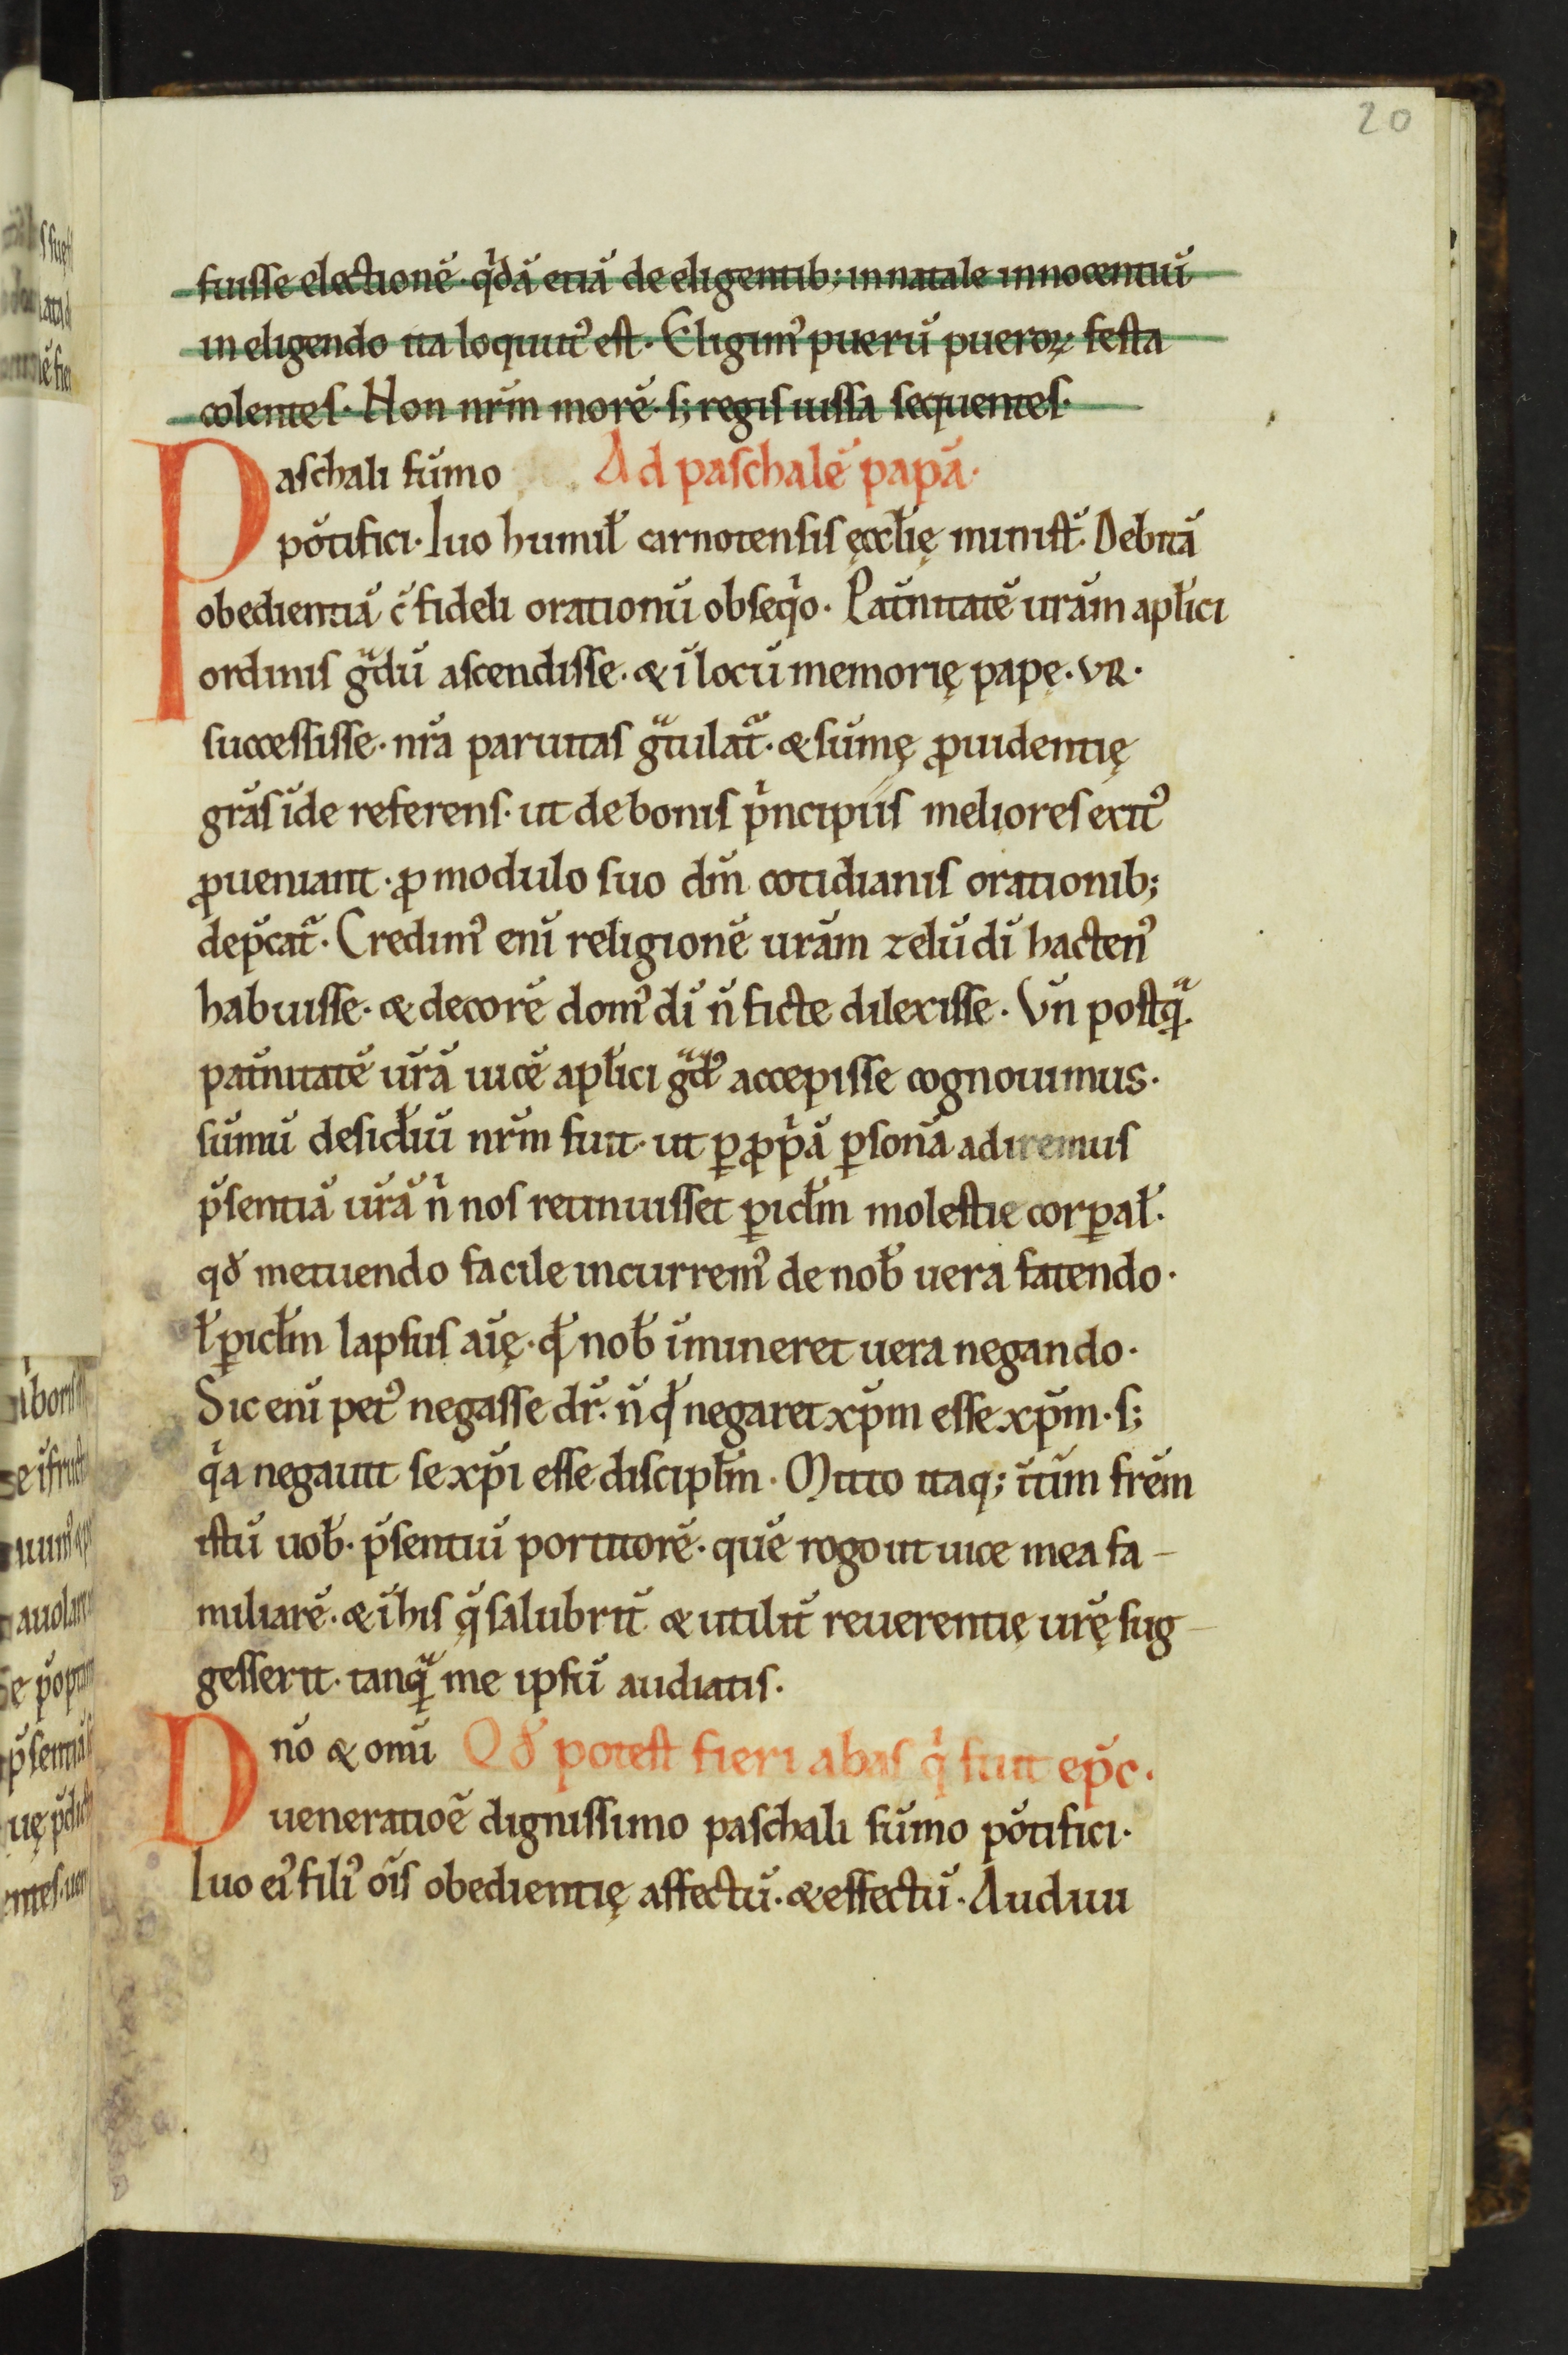 20
fuisse electionē· qͥdā etiā de eligentib; in natale innocentiū
in eligendo ita loquut᾿ est· Eligim᾿ puerū pueroꝝ festa
colentes· Non nr̄m morē· s; regis iussa sequentes·
Paschali sūmo Ad paschalē papā·
pōtifici· Iuo humil̄ carnotensis ęccl̄ię minist̄· Debitā
obedientiā c̄ fideli orationū obseqͥo· Pat̄nitatē urām apl̄ici
ordinis gͣdū ascendisse· & ī locū memorię papę· VR·
successisse· nr̄a paruitas gͣtulatͣ· & sūmę ꝓuidentię
grās īde referens· ut de bonis pͥncipiis meliores exit᾿
ꝓueniant· ꝓ modulo suo dm̄ cotidianis orationib;
dep̄catͣ· Credim᾿ enī religionē urām zelū dī hacten᾿
habuisse· & decorē dom᾿ dī n̄ ficte dilexisse· Vn̄ postqͣ·
pat̄nitatē ur̄ā uicē apl̄ici gͣd᾿ accepisse cognouimus·
sūmū desid̄iū nr̄m fuit· ut ꝑ ꝓpͥā ꝑsonā adiremus
p̄sentiā ur̄ā nͥ nos retinuisset ꝑicl̄m molestie corꝑal̄·
qđ metuendo facile incurrem᾿ de nob̄ uera fatendo·
ł ꝑicl̄m lapsus aīę· qđ nob̄ īmineret uera negando·
Sic enī pet᾿ negasse dr̄· n̄ qđ negaret xp̄m esse xp̄m· s;
qͥa negauit se xp̄i esse discipl̄m· Mitto itaq; it̄ūm frēm
istū uob̄· p̄sentiū portitorē· quē rogo ut uice mea fa-
miliarē· & ī his q̄ salubrit̄ & utilit̄ reuerentię ur̄ę sug-
gesserit· tanqͣ me ipsū audiatis·
Dnō & omī Qđ potest fieri abas qͥ fuit ep̄c·
ueneratioē dignissimo paschali sūmo pōtifici·
Iuo ei᾿ fili᾿ oīs obedientię affectū· & effectū· Audiui